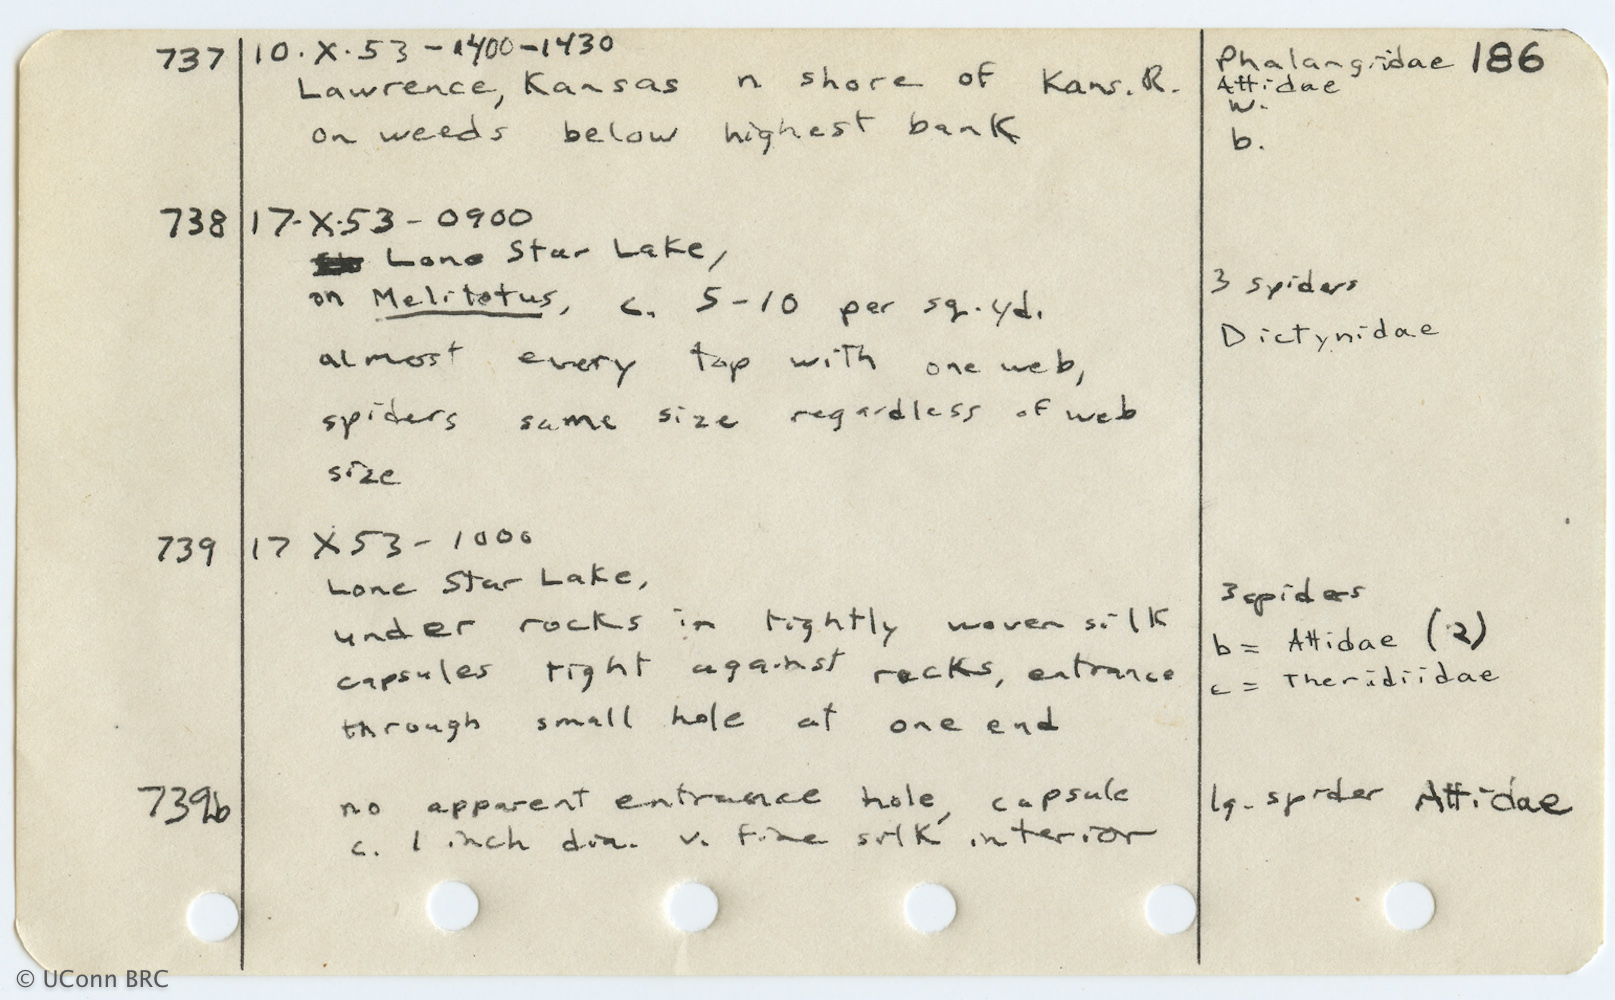 737 10·X·53 - 1400-1430 Phalangiidae 186
Lawrence, Kansas n shore of Kans. R. Attidae
w.
on weeds below highest bank b.
738 17·X·53 - 0900
Lone Star Lake,
on Melitotus, c. 5-10 per sq. yd. 3 spiders
almost every top with one web, Dictynidae
spiders same size regardless of web
size
739 17 X 53 - 1000
Lone Star Lake, 3 spiders
under rocks in tightly woven silk b = Attidae (2)
capsules right against rocks, entrance c = Theridiidae
through small hole at one end
739b no apparent entrance hole, capsule lg. spider Attidae
c. 1 inch dia. v. fine silk interior
© UConn BRC